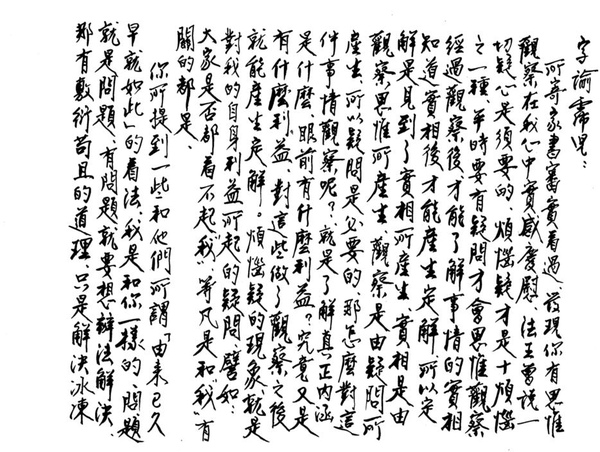 字諭霈兒：
所寄家書審實看過、發現你有思惟
觀察在我心中實感慶慰、法王曾說一
切疑心是須要的、煩惱疑才是十煩惱
之一種、平時要有疑問才會思惟觀察
經過觀察後才能了解事情的實相
知道實相後才能產生定解、所以定
解是見到了實相所產生、實相是由
觀察思惟所產生、觀察是由疑問所
產生、所以疑問是必要的、那怎麼對這
件事情觀察呢？就是了解真正內涵
是什麼、眼前有什麼利益？究竟又是
有什麼利益、對這些做了觀察之後
就能產生定解。煩惱疑的現象就是
對我的自身利益所起的疑問譬如：
大家是否都看不起"我"等凡是和"我"有
關的都是、
你所提到一些和他們所謂「由來已久
早就如此」的看法、我是和你一樣的、問題
就是問題、有問題就要想辦法解決、
都有敷衍苟且的道理、只是解決冰凍